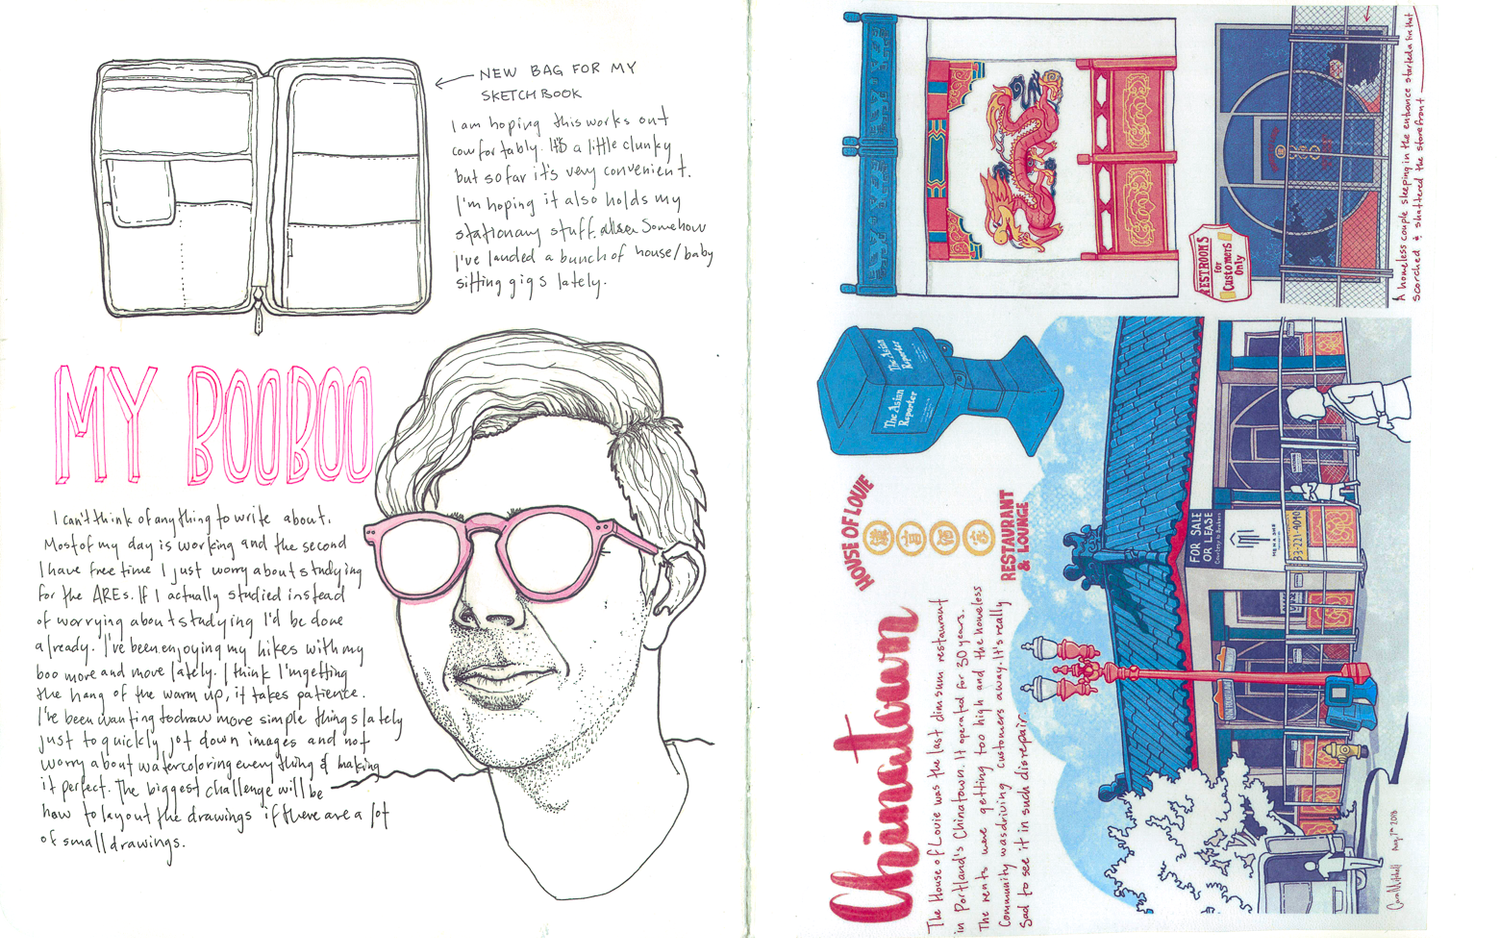 NEW BAG FOR MY
SKETCHBOOK
I am hoping this works out
comfortably. It's a little clunky
but so far it's very convenient.
I'm hoping it also holds my
stationary stuff. Somehow
I've landed a bunch of house/baby
sitting gigs lately.
MY BOOBOO
I can't think of anything to write about.
Most of my day is working and the second
I have free time I just worry about studying
for the AREs. If I actually studied instead
of worrying about studying I'd be done
already. I've been enjoying my hikes with my
boo more and more lately. I think I'm getting
the hang of the warm up, it takes patience.
I've been wanting to draw more simple things lately
just to quickly jot down images and not
worry about watercoloring everything & making
it perfect. The biggest challenge will be
how to layout the drawings if there are a lot
of small drawings.
Chinatown
The House of Louie was the last dim sum restaurant
in Portland's Chinatown. It operated for 30 years.
The rents were getting too high and the homeless
community was driving customers away. It's really
sad to see it in such disrepair.
HOUSE OF LOUIE
RESTAURANT
& LOUNGE
The Asian
Reporter
The Asian
Reporter
FOR SALE
OR LEASE
RESTROOMS
for
Customers
Only
A homeless couple sleeping in the entrance started a fire that
scorched & shattered the storefront
Aug. 7th 2018